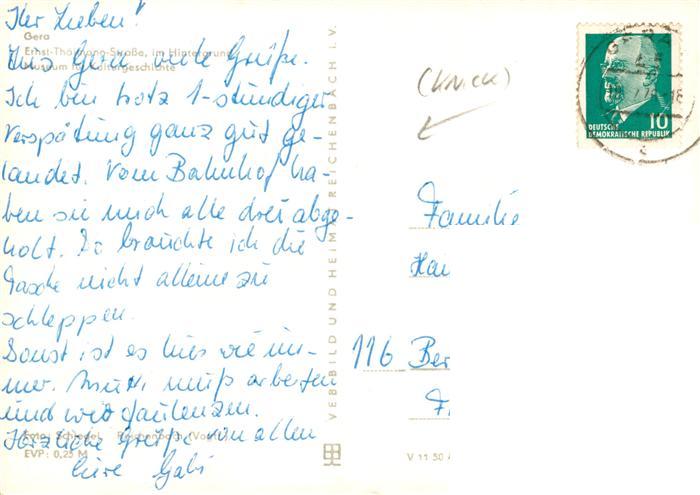 Ihr Lieben!
Gera
Ernst-Thälmann-Straße, im Hintergrund
Museum für Kulturgeschichte
Aus Gera viele Grüße.
Ich bin trotz 1-stündiger
Verspätung ganz gut ge-
landet. Vom Bahnhof ha-
ben sie mich alle drei abge-
holt. So brauchte ich die
Tasche nicht alleine zu
schleppen.
Sonst ist es hier wie im-
mer. Mutti muß arbeiten
und wir faulenzen.
Herzliche Grüße von allen
Eure Gabi
Foto: Schlegel, Reichenbach (Vogtl.)
EVP: 0,25 M
VEB BILD UND HEIMAT REICHENBACH I. V.
V 11 50
(KNICK)
10
DEUTSCHE
DEMOKRATISCHE REPUBLIK
Familie
Han
116 Ber